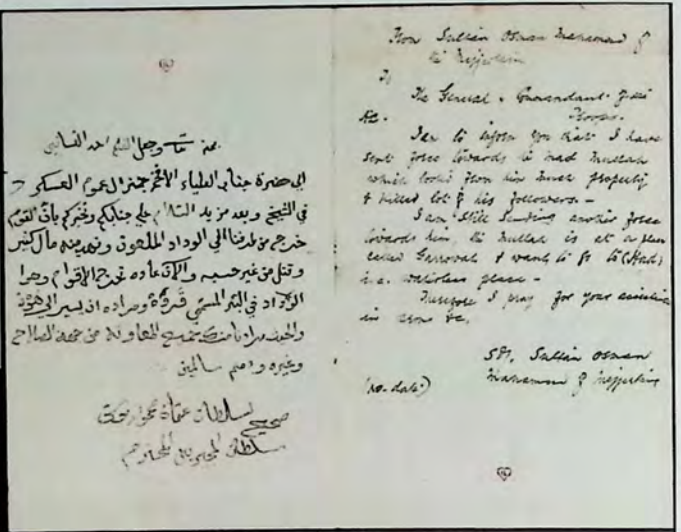 وجعل
الى حضرة جناب العلياء الافخم جنرال عموم العسكر
في الشيخ وبعد مزيد السلام على جنابكم ونخبركم بان القوم
خرج من طرفنا الى الوداد الملعون ونهب منه مال كثير
وقتل من غير حسبه والآن عاده تخرج الاقوام وهوا
الوداد في البئر المسمى قروة ومراده ان يسير الى هوت
المعاونة من جهة السلاح
وغيره ودمتم سالمين
صحيح سلطان عثمان محمود
سلطان
From Sultan Osman Mahamud of
the Mijjertein
To
The General Commandant
&c. Troops.
I am to inform you that I have
sent force towards the mad Mullah
which looted from him much property
& killed lot of his followers. —
I am still sending another force
towards him, the Mullah is at a place
called Garrowal & wants to go to (Haud)
i.e. waterless place —
Therefore I pray for your assistance
in arms &c.
Sd/. Sultan Osman
(no date) Mahamud of Mijjertein